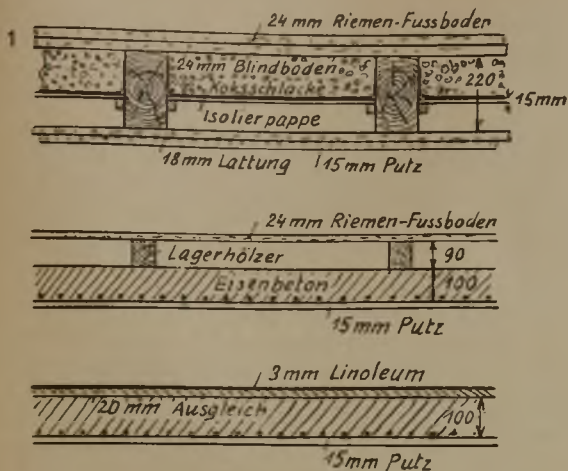 24 mm Riemen-Fussboden
1
24 mm Blindboden
220
Koksschlacke
15mm
Isolierpappe
18mm Lattung 15mm Putz
24 mm Riemen-Fussboden
Lagerhölzer 90
Eisenbeton 100
15mm Putz
3mm Linoleum
20 mm Ausgleich 100
15mm Putz